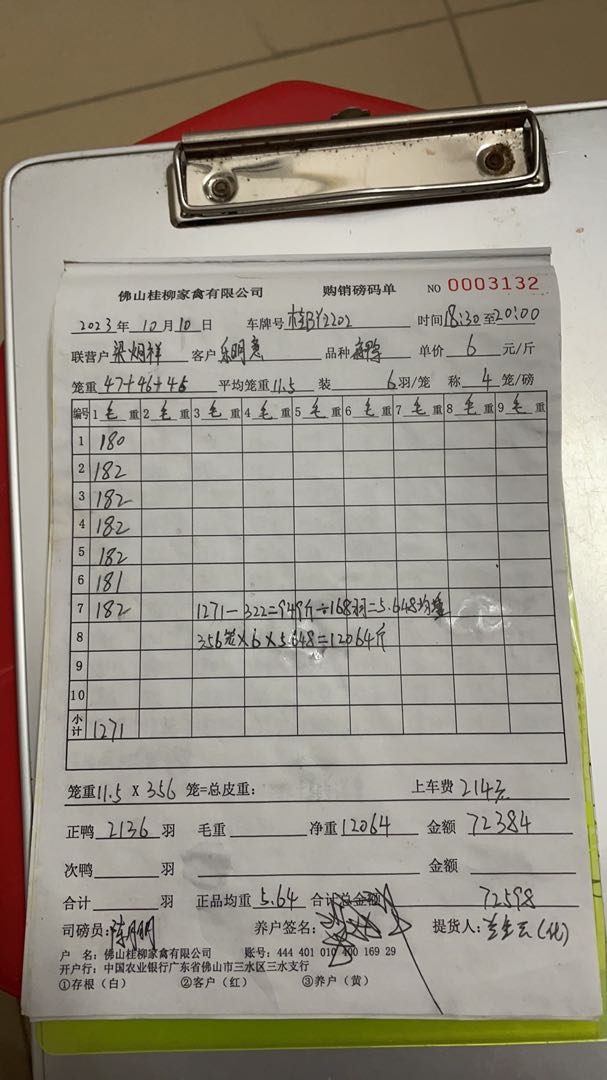 佛山桂柳家禽有限公司 购销磅码单 NO 0003132
2023年 10月10日 车牌号 时间18:30至20:00
联营户 梁炳祥 客户 乐明惠 品种 单价 6 元/斤
笼重 47+46+46 平均笼重11.5 装 6羽/笼 称 4 笼/磅
编号 1毛重 2毛重 3毛重 4毛重 5毛重 6毛重 7毛重 8毛重 9毛重
1 180
2 182
3 182
4 182
5 182
6 181
7 182 1271-322=949斤÷168羽=5.648均重
8 356笼×6×5.648=12064斤
9
10
小计 1271
笼重11.5 X 356 笼=总皮重: 上车费 214元
正鸭 2136 羽 毛重 净重12064 金额 72384
次鸭 羽 金额
合计 羽 正品均重 5.64 合计总金额 72598
司磅员: 养户签名: 提货人:
户 名:佛山桂柳家禽有限公司 账号:444 401 010 400 169 29
开户行:中国农业银行广东省佛山市三水区三水支行
①存根(白) ②客户(红) ③养户(黄)